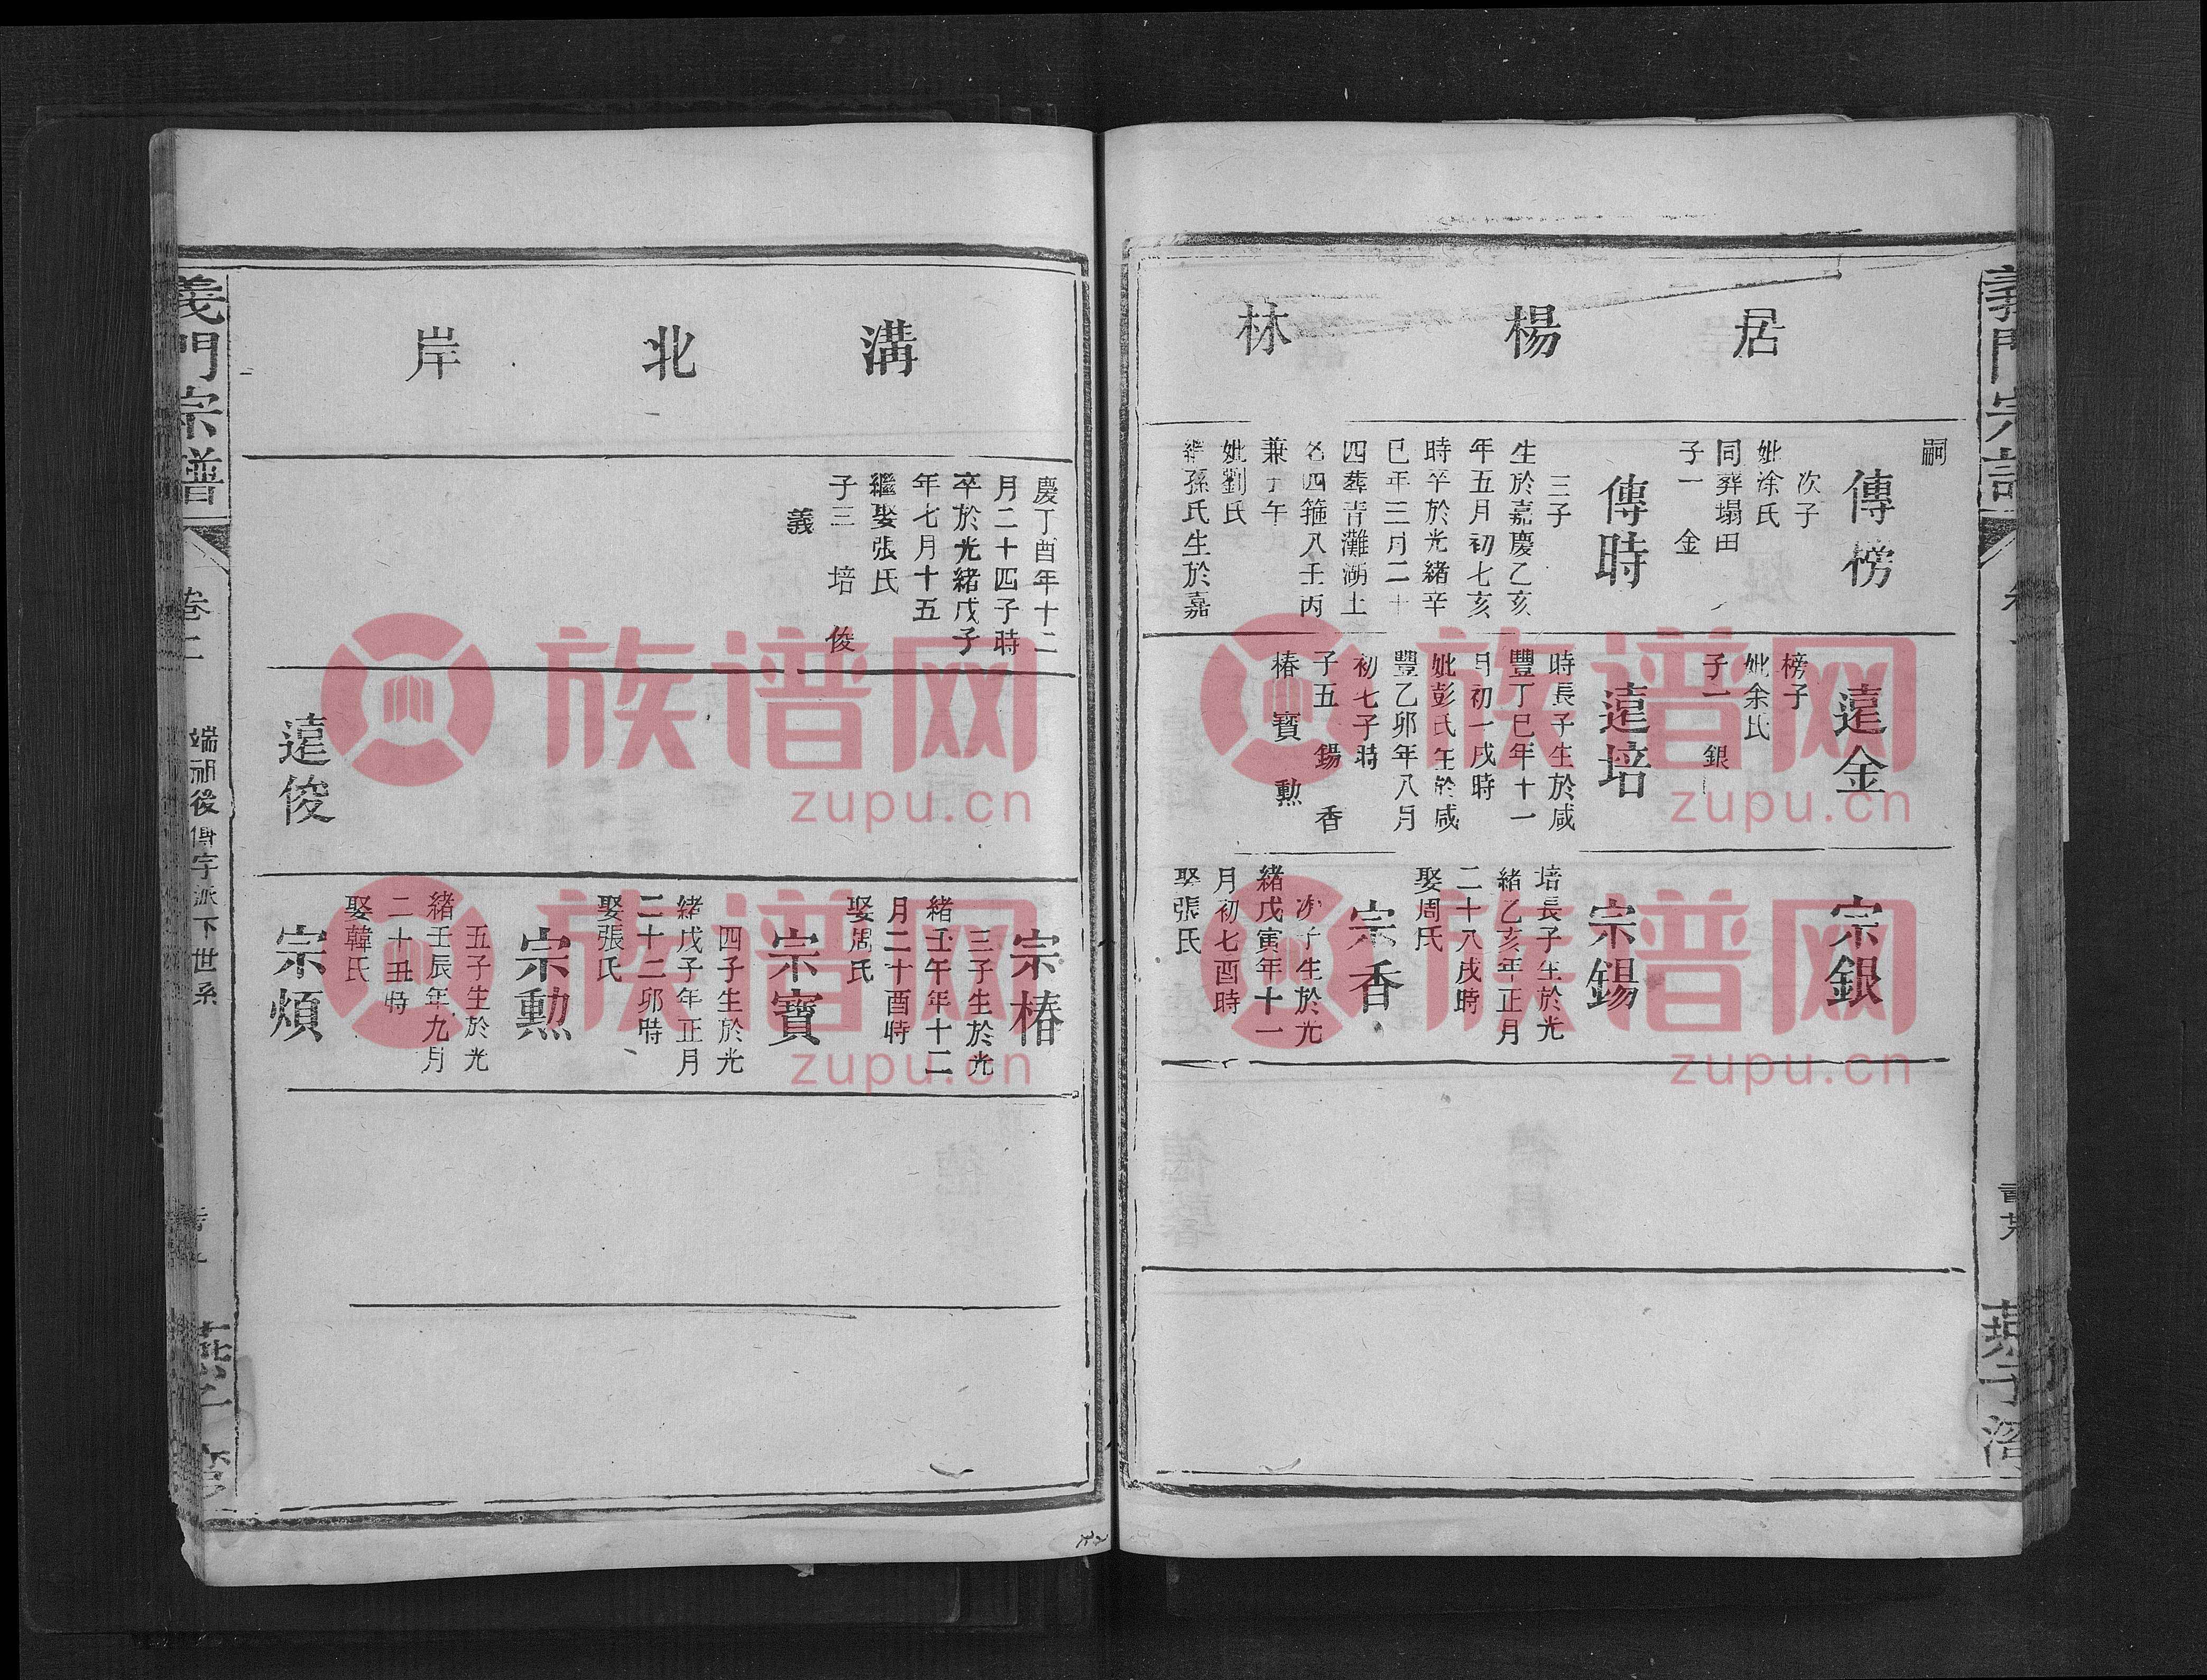 居楊林
嗣
傳榜
次子
妣涂氏
同葬塌田
子一 金
傳時
三子
生於嘉慶乙亥
年五月初七亥
時卒於光緒辛
巳年三月二十
四葬青灘湖土
名四箍八壬丙
兼子午
妣劉氏
繼孫氏生於嘉
遠金
榜子
妣余氏
子一 銀
遠培
時長子生於咸
豐丁巳年十一
月初一戌時
妣彭氏生於咸
豐乙卯年八月
初七子時
子五 錫 香
椿 寶 勲
宗銀
宗錫
培長子生於光
緒乙亥年正月
二十八戌時
娶周氏
宗香
次子生於光
緒戊寅年十一
月初七酉時
娶張氏
溝北岸
慶丁酉年十二
月二十四子時
卒於光緒戊子
年七月十五
繼娶張氏
子三 培 俊
義
遠俊
宗椿
三子生於光
緒壬午年十二
月二十酉時
娶周氏
宗寶
四子生於光
緒戊子年正月
二十二卯時
娶張氏
宗勲
五子生於光
緒壬辰年九月
二十丑時
娶韓氏
宗煩
義門宗譜
卷二
端祖後傳字派下世系
族谱网
zupu.cn
族谱网
zupu.cn
族谱网
zupu.cn
族谱网
zupu.cn